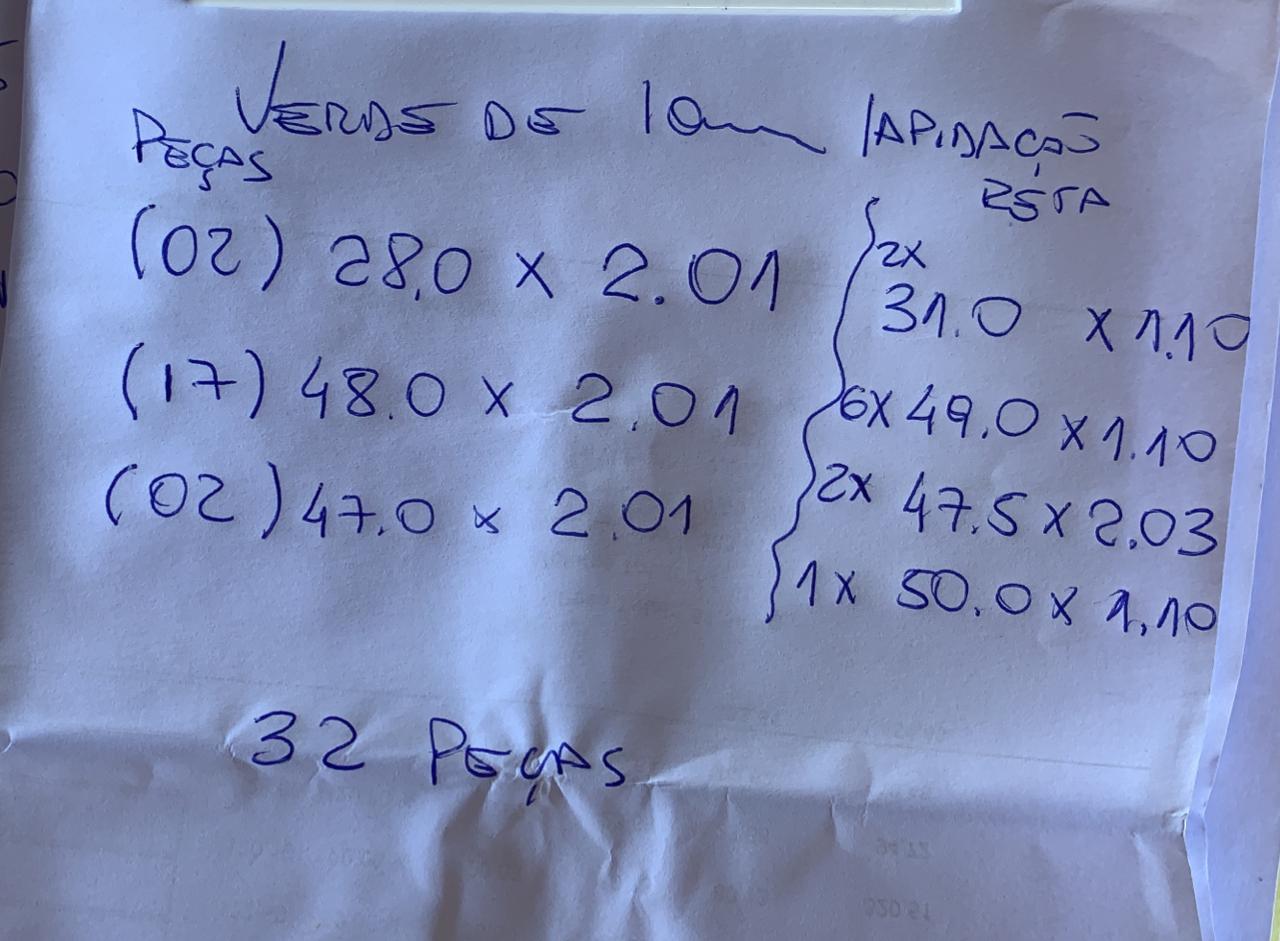 VERDE DE 10mm LAPIDAÇÃO
RETA
PEÇAS
(02) 28,0 x 2.01
(17) 48.0 x 2.01
(02) 47.0 x 2.01
2x
31.0 x 1.10
6x 49.0 x 1.10
2x 47.5 x 2.03
1x 50.0 x 1.10
32 PEÇAS